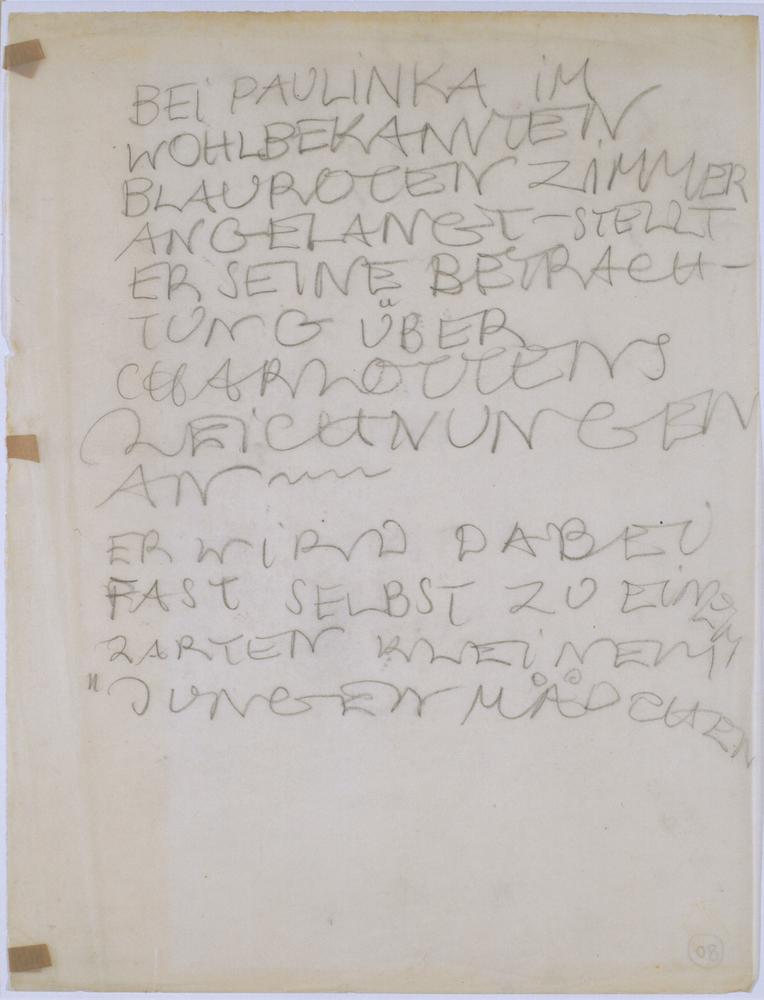 BEI PAULINKA IM
WOHLBEKANNTEN
BLAUROTEN ZIMMER
ANGELANGT-STELLT
ER SEINE BETRACH-
TUNG ÜBER
CHARLOTTENS
ZEICHNUNGEN
AN ~~~
ER WIRD DABEI
FAST SELBST ZU EINEM
ZARTEN KLEINEM
"JUNGEN MÄDCHEN
80